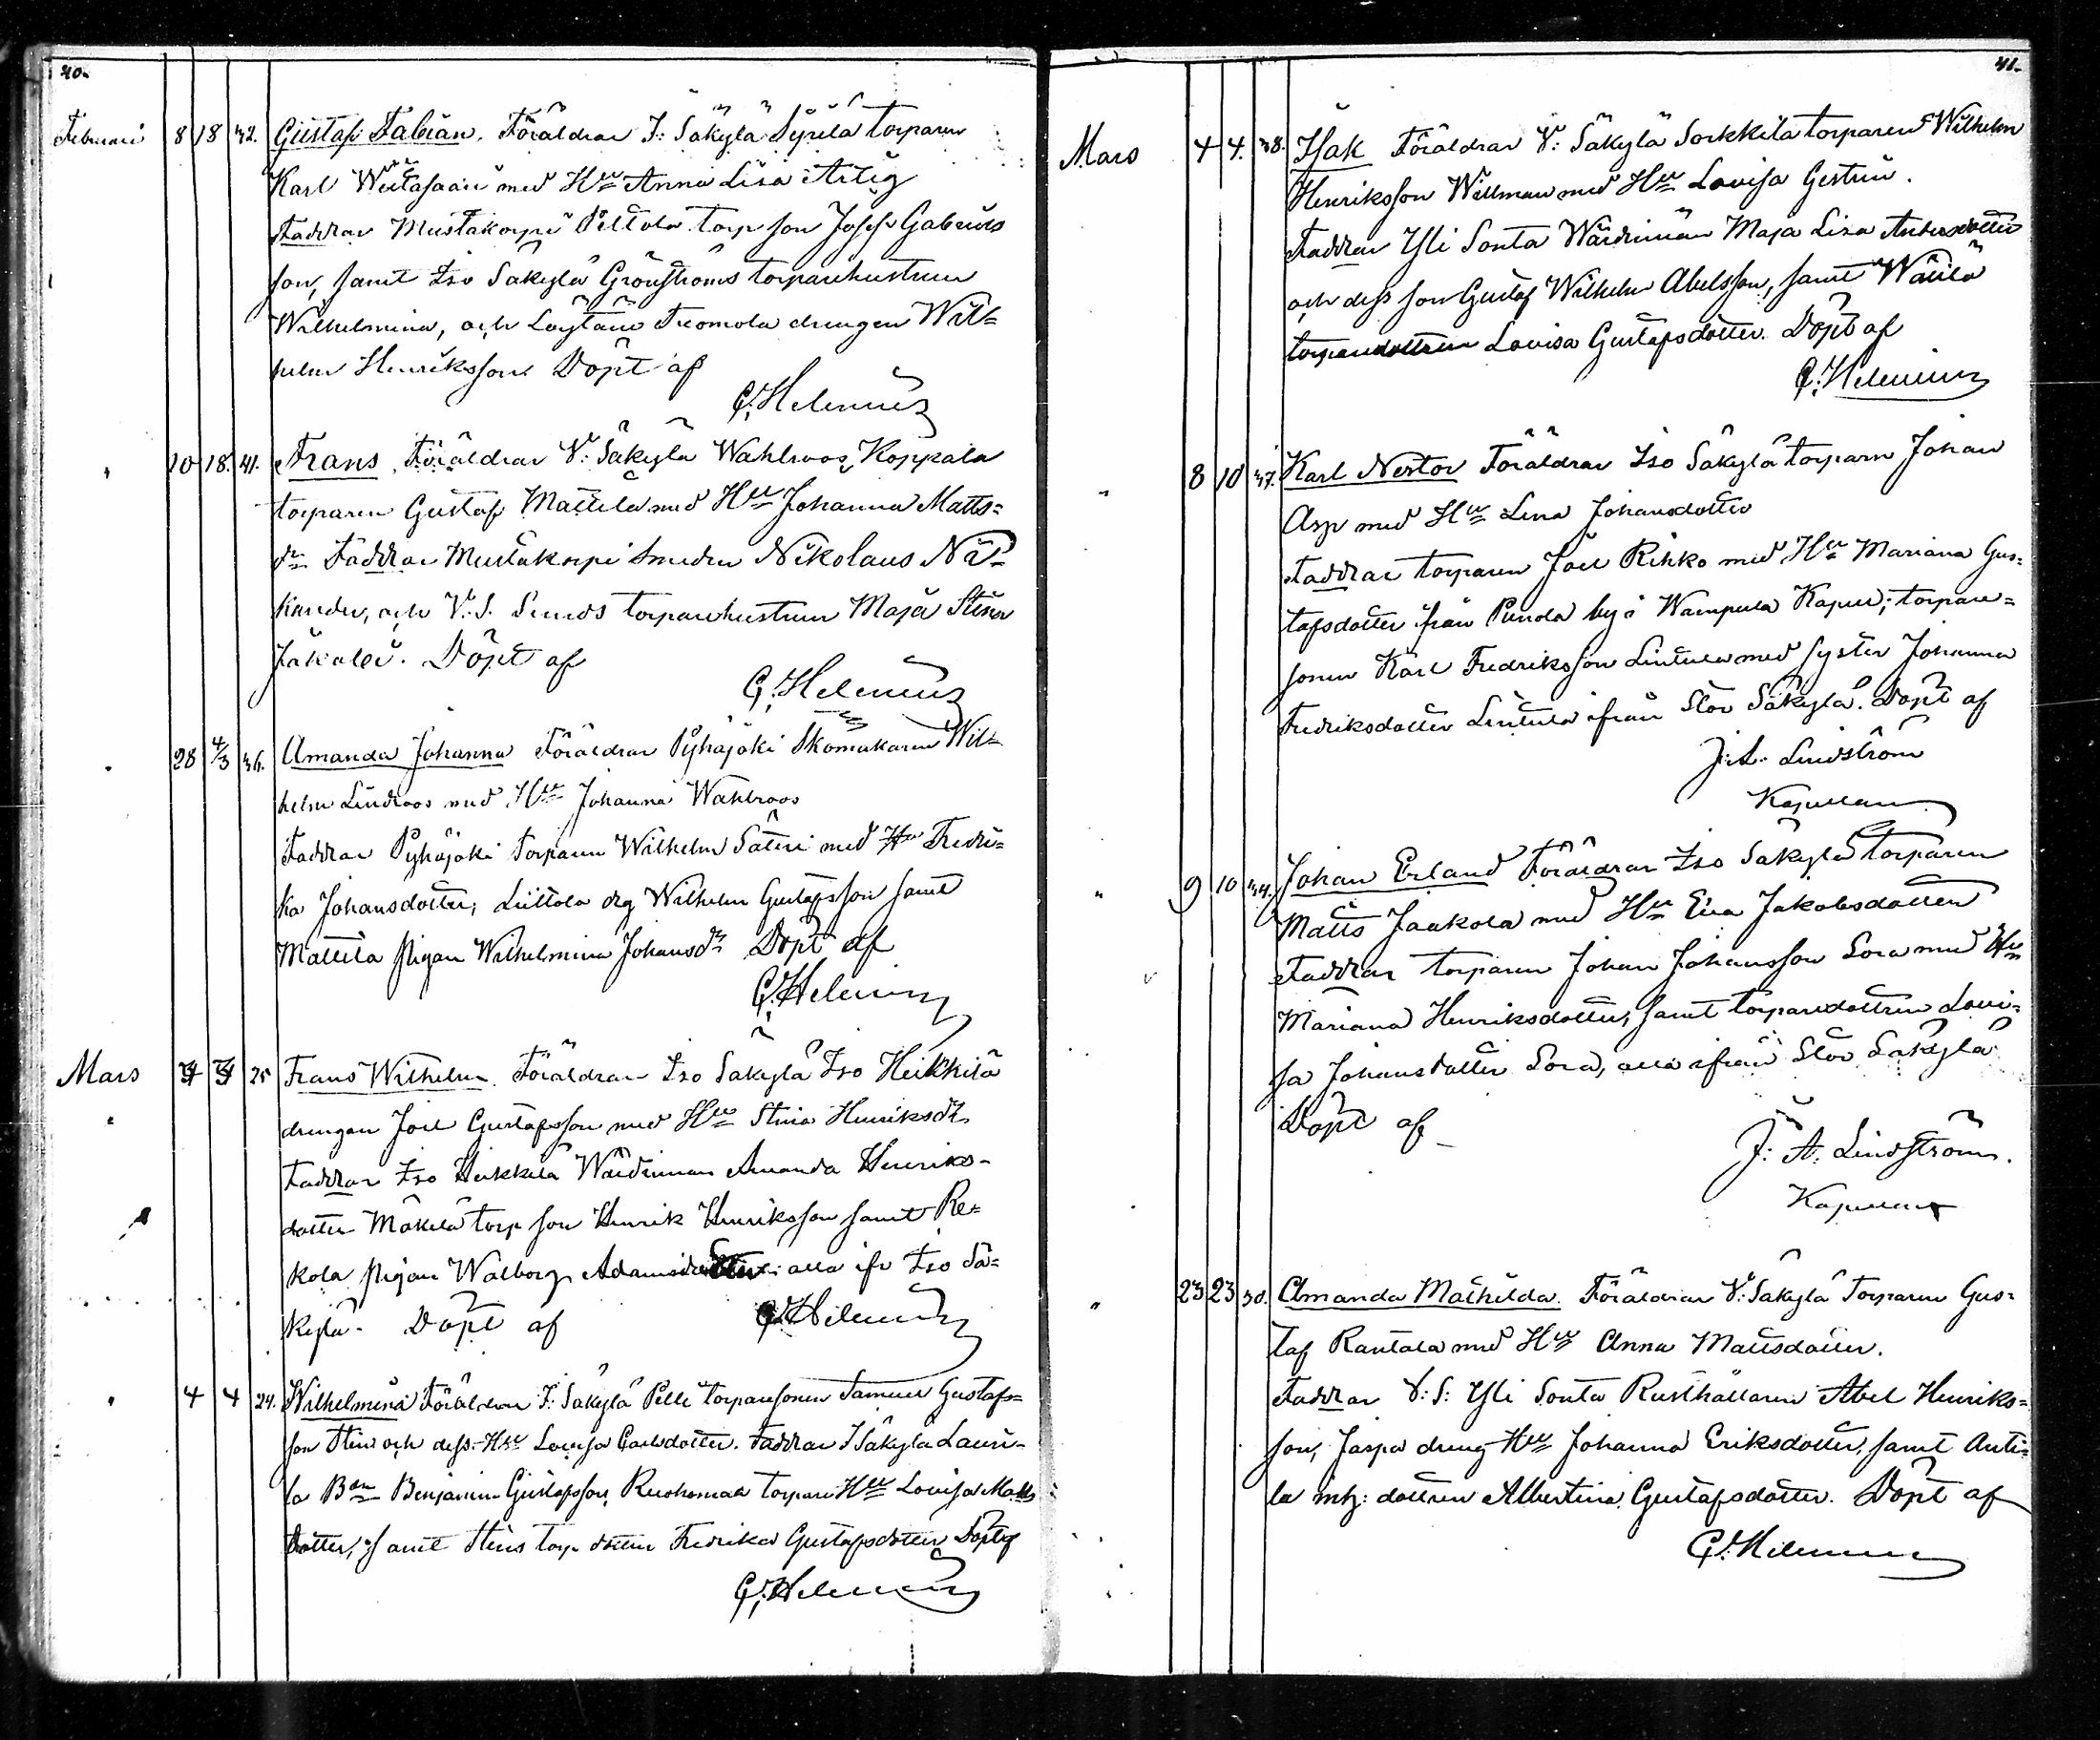 40.
Februari 8 18 32. Gustaf Fabian. Föräldrar I: Säkylä Syrilä torparen
Karl Wertasaari med Hu Anna Lisa Artig
Faddrar Mustakorpi Peltola torp son Josef Gabriels
son, samt Iso Säkylä Grönströms torparehustrun
Wilhelmina, och Löytäne Tuomola drengen Wil=
helm Henriksson. Döpt af
G. Helenius
" 10 18. 41. Frans. Föräldrar V: Säkylä Wahlroos, Koppala
torparen Gustaf Mattila med Hu Johanna Matts=
dr Faddrar Mustakorpi Smeden Nikolaus Näs=
kander, och V. S. Sunds torparehustrun Maja Stina
Jakola. Döpt af
G. Helenius
" 28 4/3 36. Amanda Johanna Föräldrar Pyhäjoki Skomakaren Wil=
helm Lindroos med Hu Johanna Wahlroos
Faddrar Pyhäjoki torparen Wilhelm Säteri med Hu Fredri=
ka Johansdotter, Liittola drg Wilhelm Gustafsson samt
Mattila pigan Wilhelmina Johansdr Döpt af
G. Helenius
Mars 25 Frans Wilhelm. Föräldrar Iso Säkylä Iso Heikkilä
drengen Joel Gustafsson med Hu Stina Henriksdr
Faddrar Iso Heikkilä Wärdinnan Amanda Henriks=
dotter Mäkelä torp son Henrik Henriksson samt Re=
kola pigan Walborg Adamsdotter alla ifr Iso Sä=
kylä. Döpt af G. Helenius
" 4 4 24. Wilhelmina Föräldrar I: Säkylä Pelli torparesonen Samuel Gustafs=
son Stens och dess Hu Lovisa Carlsdotter. Faddrar I Säkylä Lauri=
la Bon Benjamin Gustafsson, Ruohomaa torpare Hu Lovisa Matts
dotter, samt Stens torp dottren Fredrika Gustafsdotter Döpt af
G. Helenius
41.
Mars 4 4. 38. Isak Föräldrar V: Säkylä Sorkkila torparen Wilhelm
Henriksson Willman med Hu Lovisa Gestrin.
Faddrar Yli Sonta Wärdinnan Maja Lisa Andersdotter
och dess son Gustaf Wilhelm Abelsson, samt Wälilä
torparedottren Lovisa Gustafsdotter. Döpt af
G. Helenius
" 8 10 37. Karl Nestor Föräldrar Iso Säkylä torparn Johan
Asp med Hu Lena Johansdotter
Faddrar torparen Joel Rihko med Hu Mariana Gus=
tafsdotter från Punola by i Wampula Kapell; torpare=
sonen Karl Fredriksson Lintula med syster Johanna
Fredriksdotter Lintula ifrån Stor Säkylä. Döpt af
J. A. Lindström
Kapellan
" 9 10 34. Johan Erland Föräldrar Iso Säkylä torparen
Matts Jaakola med Hu Eva Jakobsdotter
Faddrar torparen Johan Johansson Sora med Hu
Mariana Henriksdotter, samt torparedottren Lovi=
sa Johansdotter Sora, alla ifrån Stor Säkylä
Döpt af
J: A: Lindström.
Kapellan
" 23 23 30. Amanda Mathilda. Föräldrar V: Säkylä Torparen Gus=
taf Rantala med Hu Anna Mattsdotter.
Faddrar V: S: Yli Sonta Rusthållaren Abel Henriks=
son, Jaspa dreng Hu Johanna Eriksdotter, samt Anti=
la inh: dottren Albertina Gustafsdotter. Döpt af
G. Helenius